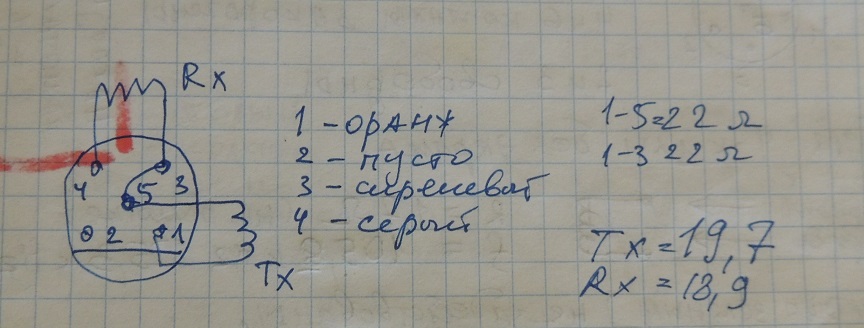 Rx
4 5 3
2 1
Tx
1 - оранж
2 - пусто
3 - сиреневат
4 - серый
1-5=22 Ω
1-3 22 Ω
Tx = 19,7
Rx = 18,9